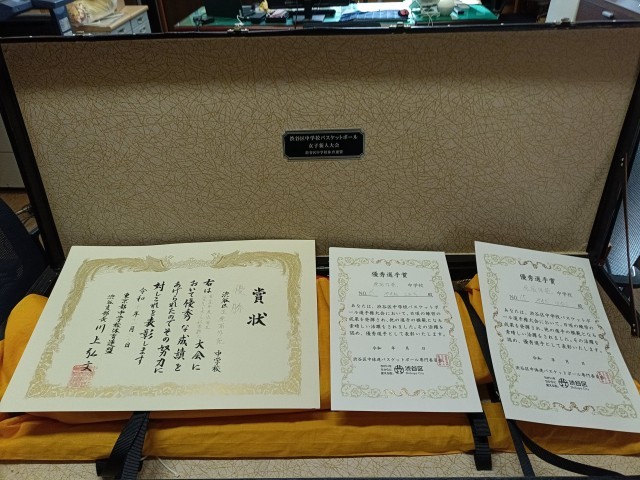 渋谷区中学校バスケットボール
女子新人大会
賞状
優勝
渋谷区
中学校
右は
大会に
おいて優秀な成績を
あげられたのでその努力に
対しこれを表彰します
令和 年 月 日
東京都中学校体育連盟
渋谷支部長 川上弘文
優秀選手賞
中学校
あなたは、渋谷区中学校バスケットボ
ール選手権大会において、日頃の練習の
成果を発揮され、他の選手の模範になる
素晴しい活躍をされました。その活躍を
認め、優秀選手として表彰いたします。
令和 年 月 日
渋谷区中体連バスケットボール専門委員
渋谷区
優秀選手賞
中学校
あなたは、渋谷区中学校バスケットボ
ール選手権大会において、日頃の練習の
成果を発揮され、他の選手の模範になる
素晴しい活躍をされました。その活躍を
認め、優秀選手として表彰いたします。
令和 年 月 日
渋谷区中体連バスケットボール専門委員
渋谷区